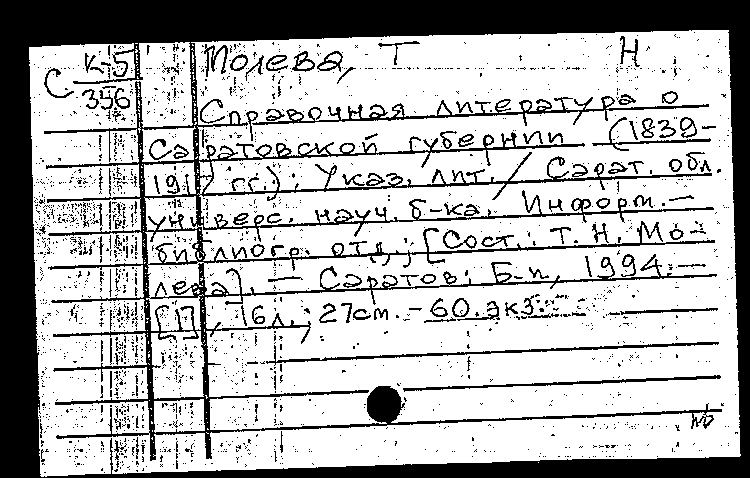 С К-5 Молева, Т Н
356
Справочная литература о
Саратовской губернии (1839-
1917 гг.): Указ. лит. / Сарат. обл.
универс. науч. б-ка. Информ.-
библиогр. отд.; [Сост.: Т. Н. Мо-
лева]. — Саратов: Б-и, 1994.—
[1], 16 л.; 27 см. - 60. экз.